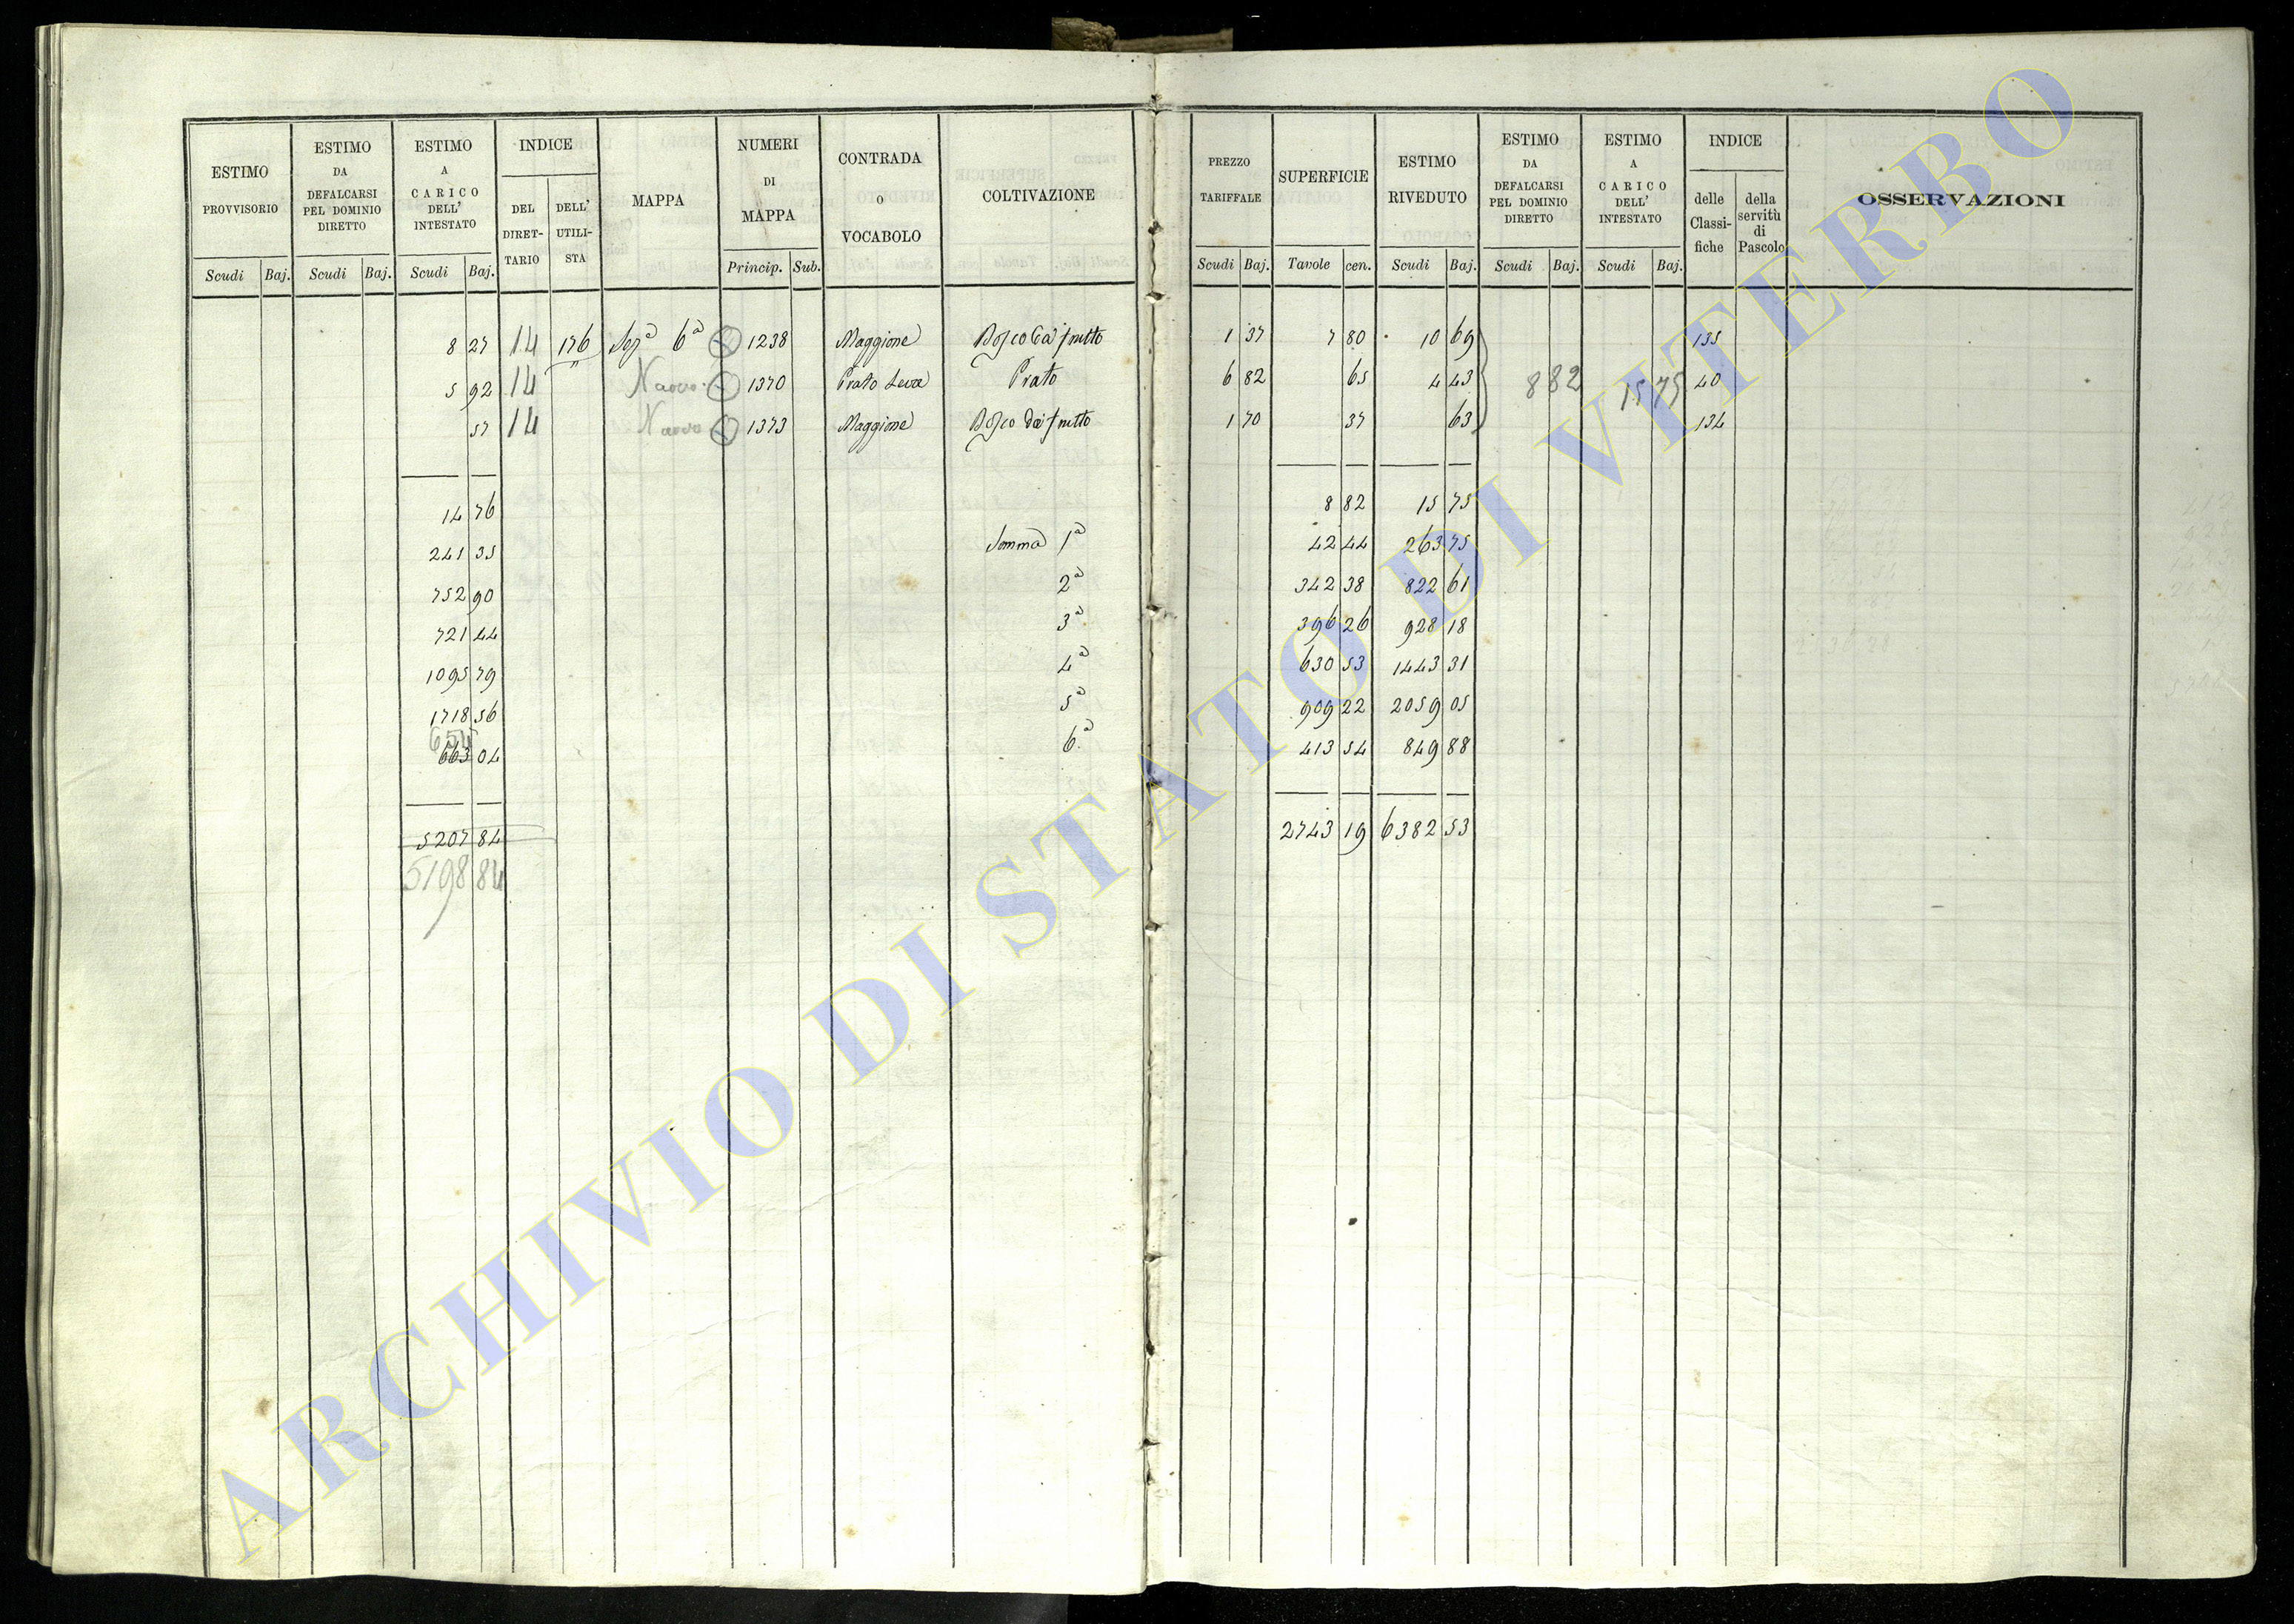 ESTIMO PROVVISORIO Scudi Baj.
ESTIMO DA DEFALCARSI PEL DOMINIO DIRETTO Scudi Baj.
ESTIMO A CARICO DELL' INTESTATO Scudi Baj.
INDICE DEL DIRET-TARIO DELL' UTILI-STA
MAPPA
NUMERI DI MAPPA Princip. Sub.
CONTRADA O VOCABOLO
COLTIVAZIONE
8 27 14 176 6ª 1238 Maggione Bosco da frutto
5 92 14 1370 Prato Leva Prato
57 14 1373 Maggione Bosco da frutto
14 76
241 35 Somma 1ª
752 90 2ª
721 44 3ª
1095 79 4ª
1718 56 5ª
654
663 04 6ª
5207 84
5198 84
PREZZO TARIFFALE Scudi Baj.
SUPERFICIE Tavole cen.
ESTIMO RIVEDUTO Scudi Baj.
ESTIMO DA DEFALCARSI PEL DOMINIO DIRETTO Scudi Baj.
ESTIMO A CARICO DELL' INTESTATO Scudi Baj.
INDICE delle Classi-fiche della servitù di Pascolo
OSSERVAZIONI
1 37 7 80 10 69 135
6 82 65 4 43 8 82 15 75 40
1 70 37 63 134
8 82 15 75
42 44 263 75
342 38 822 61
396 26 928 18
630 53 1443 31
909 22 2059 05
413 54 849 88
2743 19 6382 53
ARCHIVIO DI STATO DI VITERBO